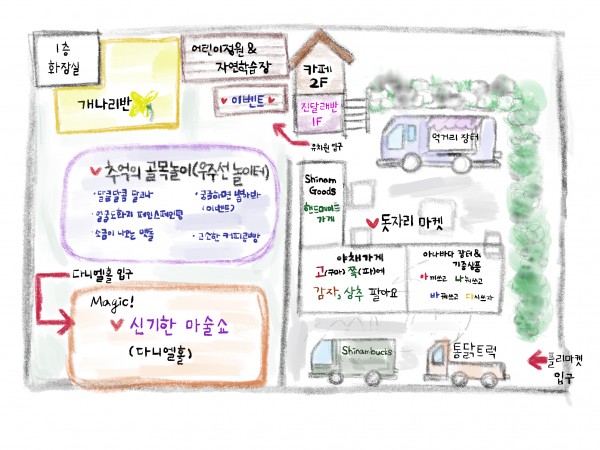 1층
화장실
개나리반
어린이정원 &
자연학습장
♥ 이벤트 ♥
카페
2F
진달래반
1F
유치원 입구
먹거리 장터
♥ 추억의 골목놀이(우주선 놀이터)
· 달콤달콤 달고나
· 궁금하면 뽑아봐
(이벤트)
· 얼굴도화지 페이스페인팅
· 소름이 나오는 맷돌
· 고소한 커피콩빵
Shinam
Goods
핸드메이드
가게
♥ 돗자리 마켓
야채가게
고(구마) 쭉(파)에
감자, 상추 팔아요
아나바다 장터 &
기증상품
아껴쓰고 나눠쓰고
바꿔쓰고 다시쓰고
다니엘홀 입구
Magic!
♥ 신기한 마술쇼
(다니엘홀)
Shinambucks
통닭트럭
플리마켓
입구